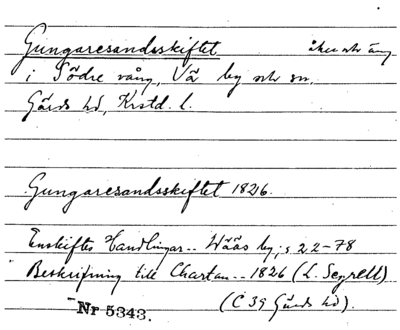 Gungaresandsskiftet åker och äng
i Södre vång, Vä by och sn.
Gärds hd, Krstd. l.
Gungaresandsskiftet 1826.
Enskiftes Handlingar.. Wääs by, s 22-78
Beskrifning till Chartan.. 1826 (L. Segrell)
(C 39 Gärds hd).
Nr 5343.